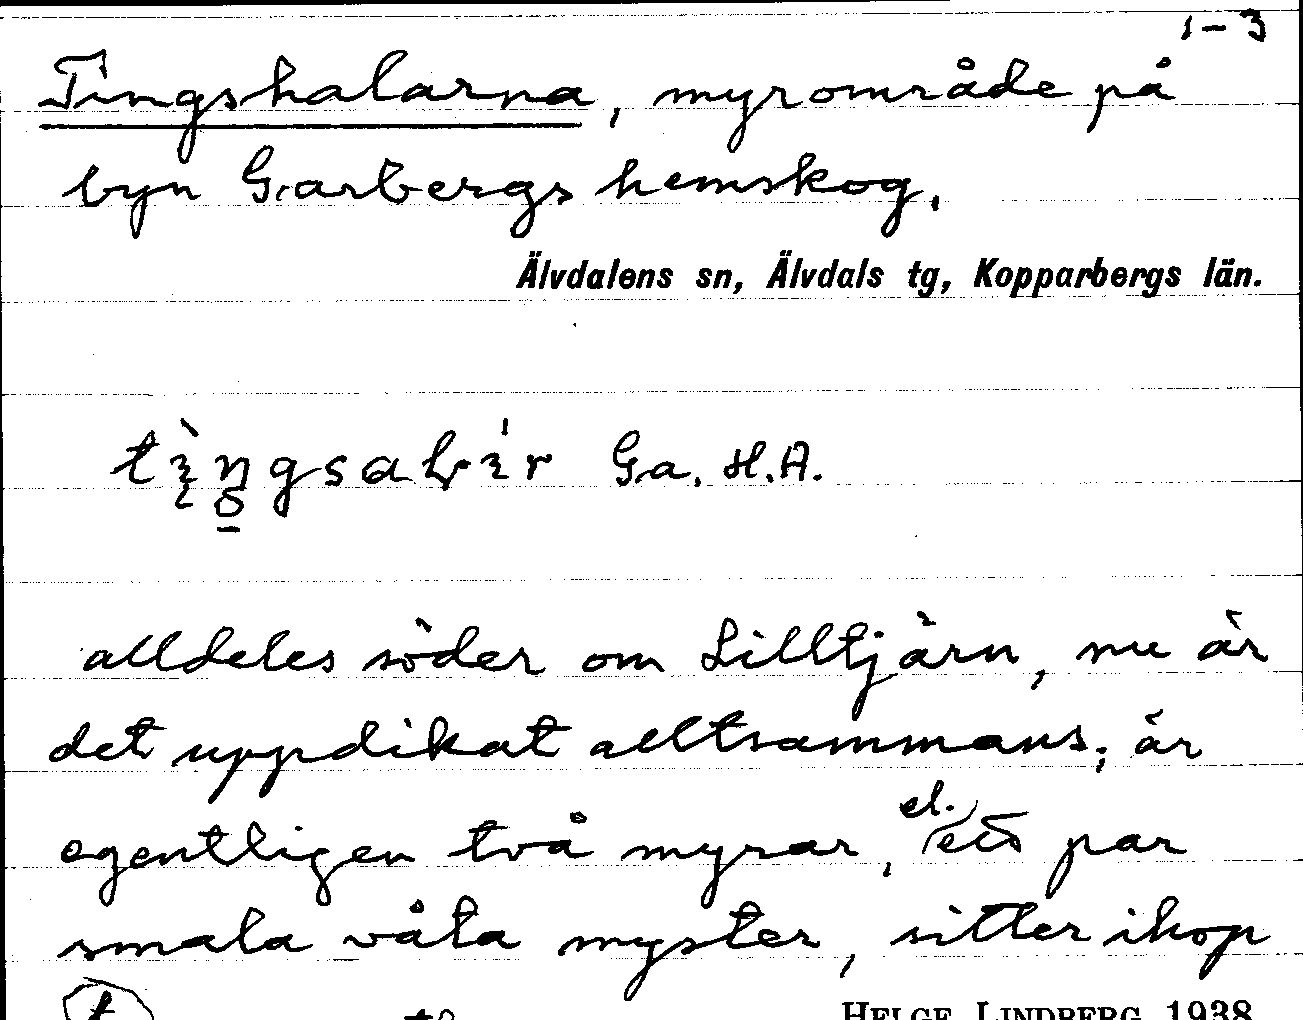 1-3
Tingshalarna, myrområde på
byn Garbergs hemskog.
Älvdalens sn, Älvdals tg, Kopparbergs län.
Ga. H.A.
alldeles söder om Lilltjärn, nu är
det uppdikat alltsammans; är
egentligen två myrar, el. ett par
smala våta myster, sitter ihop
HELGE LINDBERG 1938